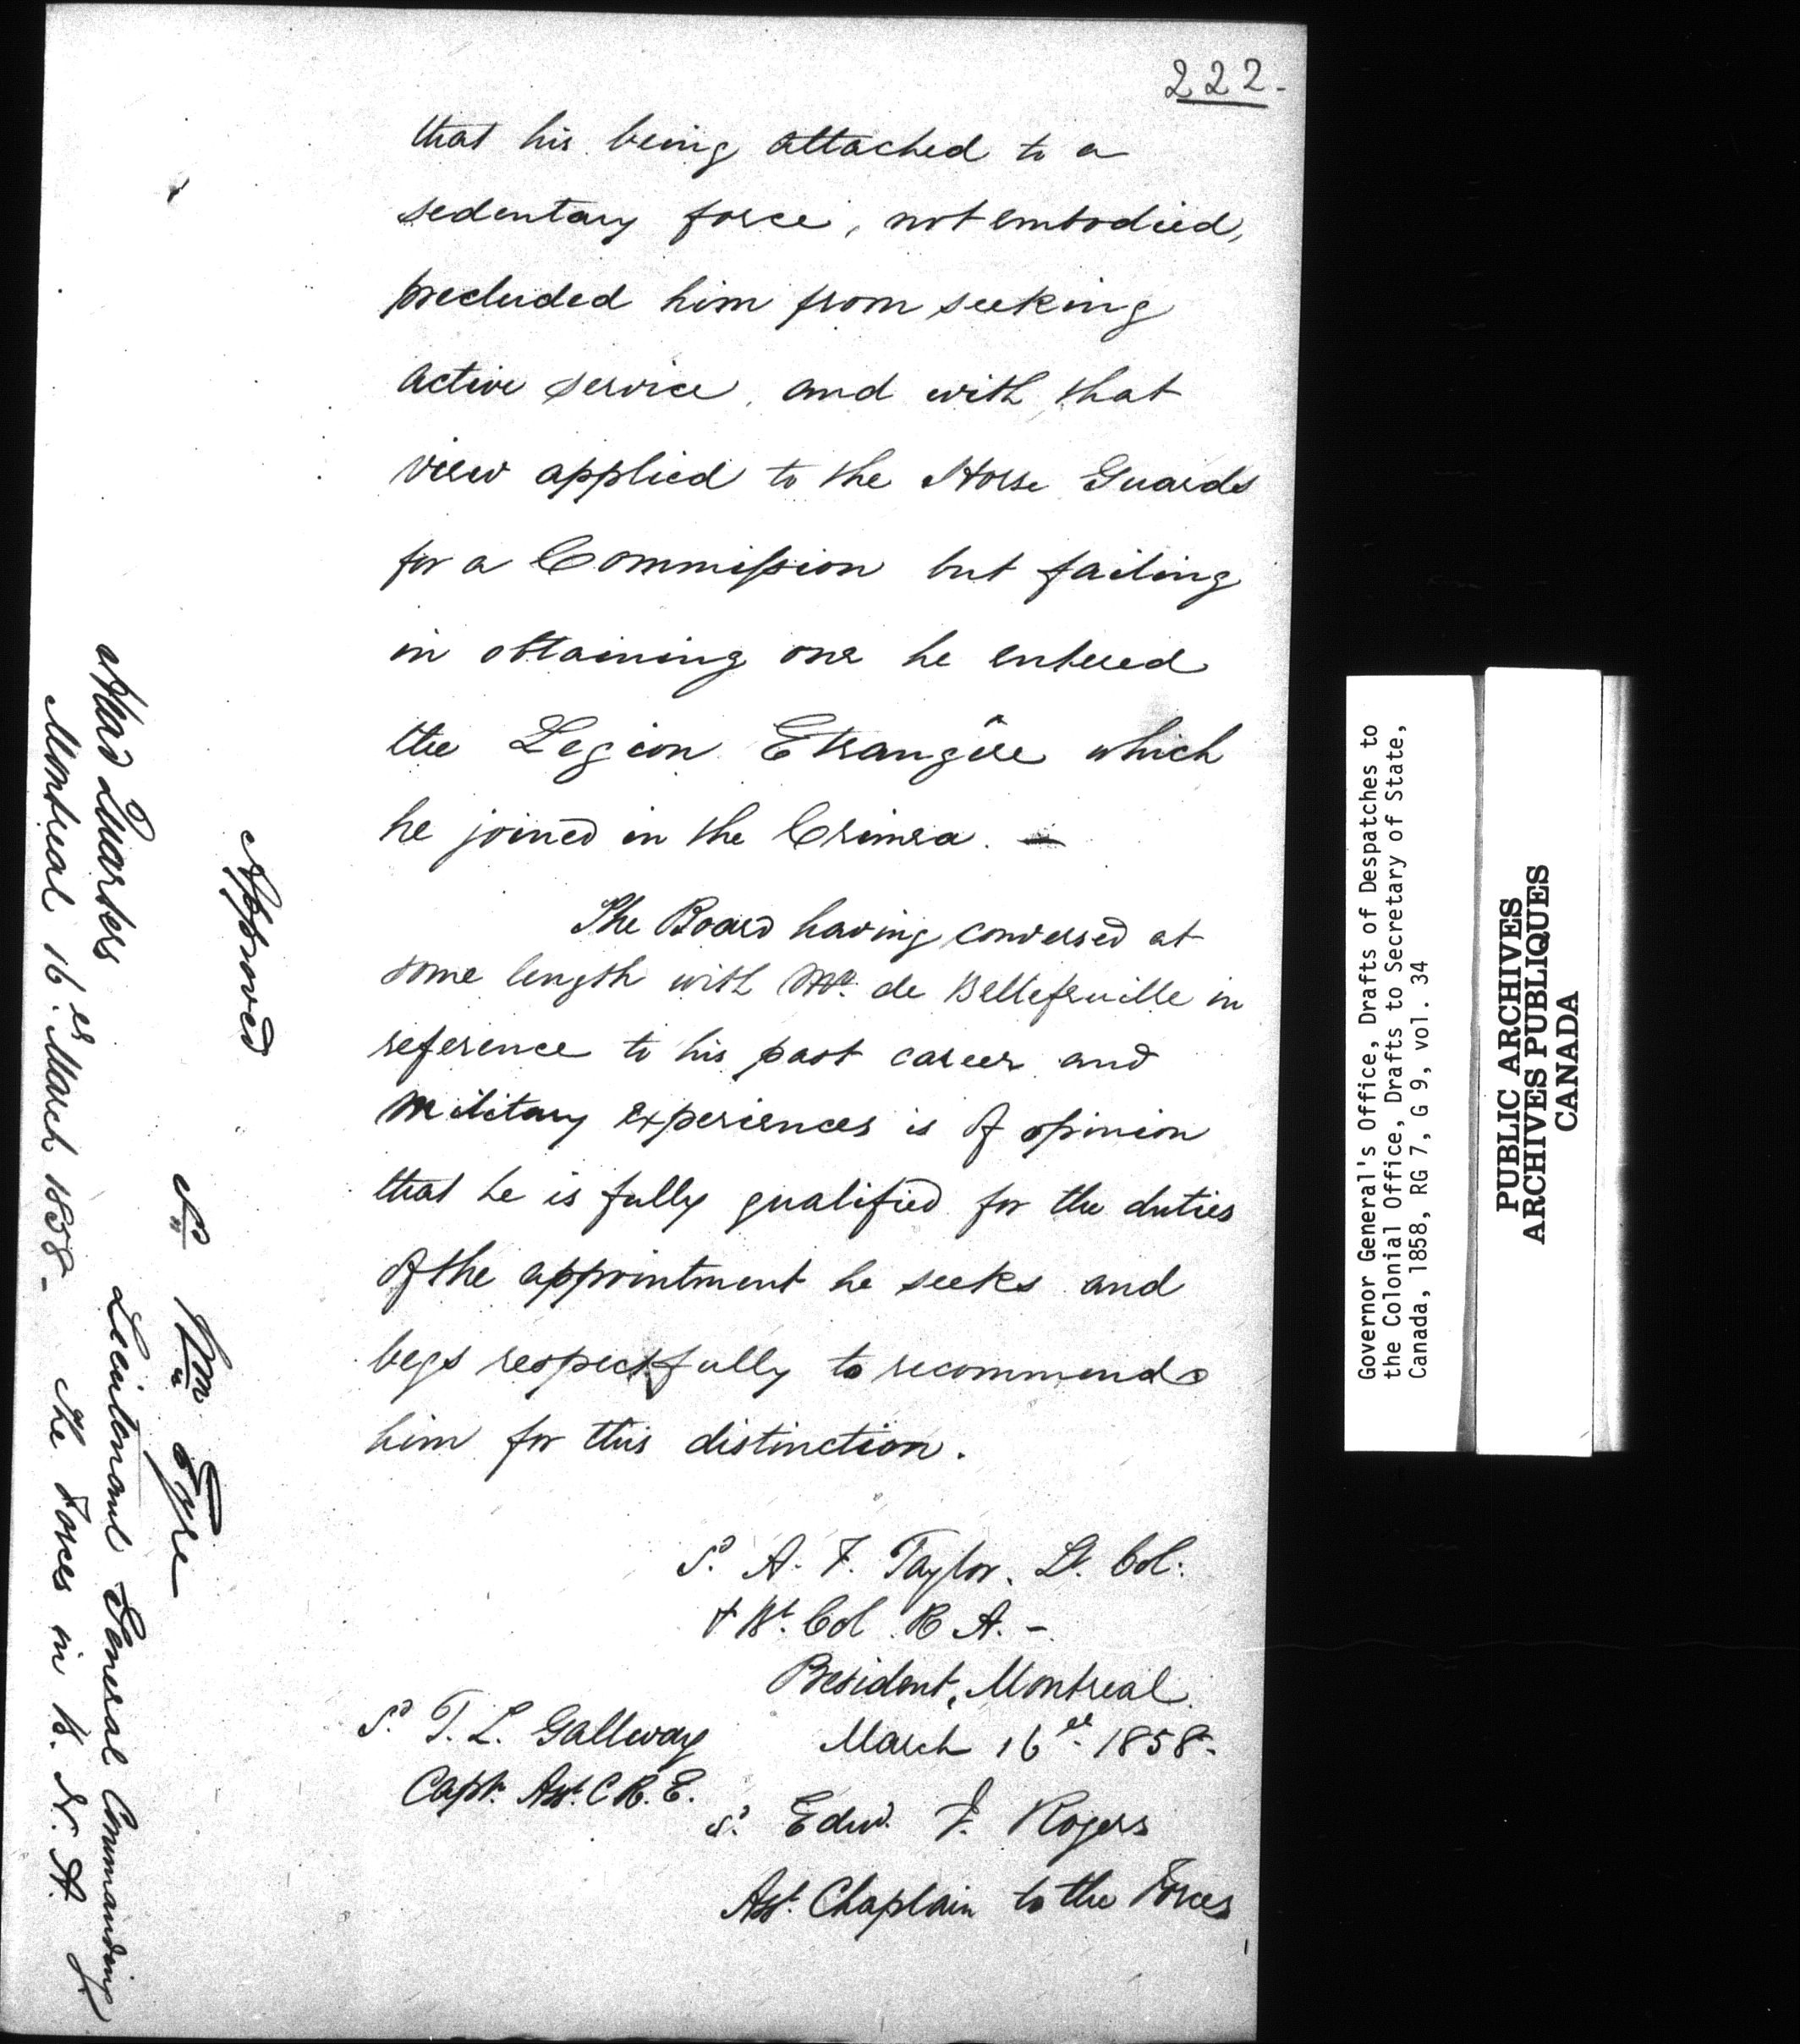 222-
that his being attached to a
sedentary force, not embodied,
precluded him from seeking
active service, and with that
view applied to the Horse Guards
for a Commission but failing
in obtaining one he entered
the Legion Etrangêre which
he joined in the Crimea. —
The Board having conversed at
some length with Mr. de Bellefeuille in
reference to his past career and
military experiences is of opinion
that he is fully qualified for the duties
of the appointment he seeks and
begs respectfully to recommend
him for this distinction.
S. A. F. Taylor, Lt. Col:
& Bt. Col R A. -
President, Montreal.
March 16th 1858-
S. T. L. Gallwey
Capt. Asst. C R. E.
S. Edw. J. Rogers
Asst. Chaplain to the Forces
Approved
Sn Wm Eyre
Lieutenant General Commanding
The Forces in B. N. A.
Head Quarters
Montreal 16 March 1858-
Governor General's Office, Drafts of Despatches to
the Colonial Office, Drafts to Secretary of State,
Canada, 1858, RG 7, G 9, vol. 34
PUBLIC ARCHIVES
ARCHIVES PUBLIQUES
CANADA